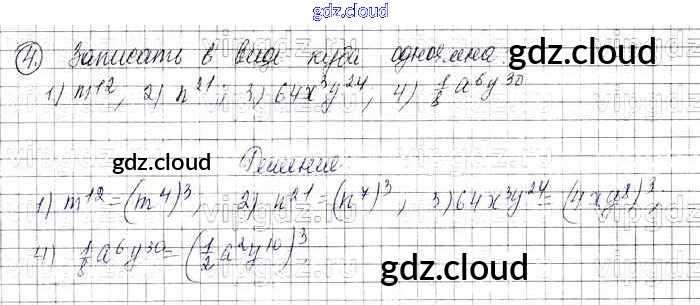 gdz.cloud
4. Записать в виде куба одночлена: gdz.cloud
1) m¹², 2) n²¹; 3) 64x³y²⁴, 4) 1/8 a⁶y³⁰
gdz.cloud
Решение
1) m¹² = (m⁴)³, 2) n²¹ = (n⁷)³, 3) 64x³y²⁴ = (4xy⁸)³,
4) 1/8 a⁶y³⁰ = (1/2 a²y¹⁰)³
gdz.cloud
gdz.cloud